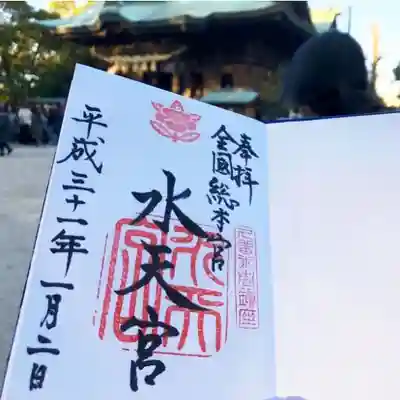 奉拝
全国総本宮
水天宮
平成三十一年一月二日